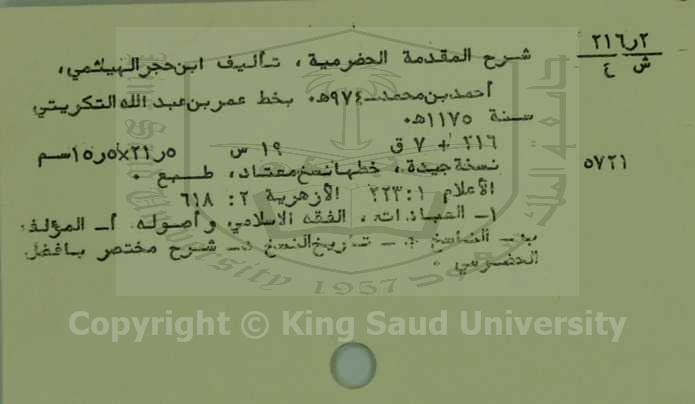 ٢ر٢١٦
ش ٤
شرح المقدمة الحضرمية، تأليف ابن حجر الهيثمي،
أحمد بن محمد ـ ٩٧٤هـ. بخط عمر بن عبد الله التكريتي
سنة ١١٧٥هـ.
٢١٦ + ٧ ق ١٩ س ٥ر٢١×٥ر١٥سم
نسخة جيدة، خطها نسخ معتاد، طبع.
٥٧٢١
الأعلام ١: ٢٢٣ الأزهرية ٢: ٦١٨
١ـ العبادات، الفقه الاسلامي وأصوله أ ـ المؤلف
ب ـ الناسخ ج ـ تاريخ النسخ د ـ شرح مختصر بافضل
الحضرمي.
1957
Copyright © King Saud University